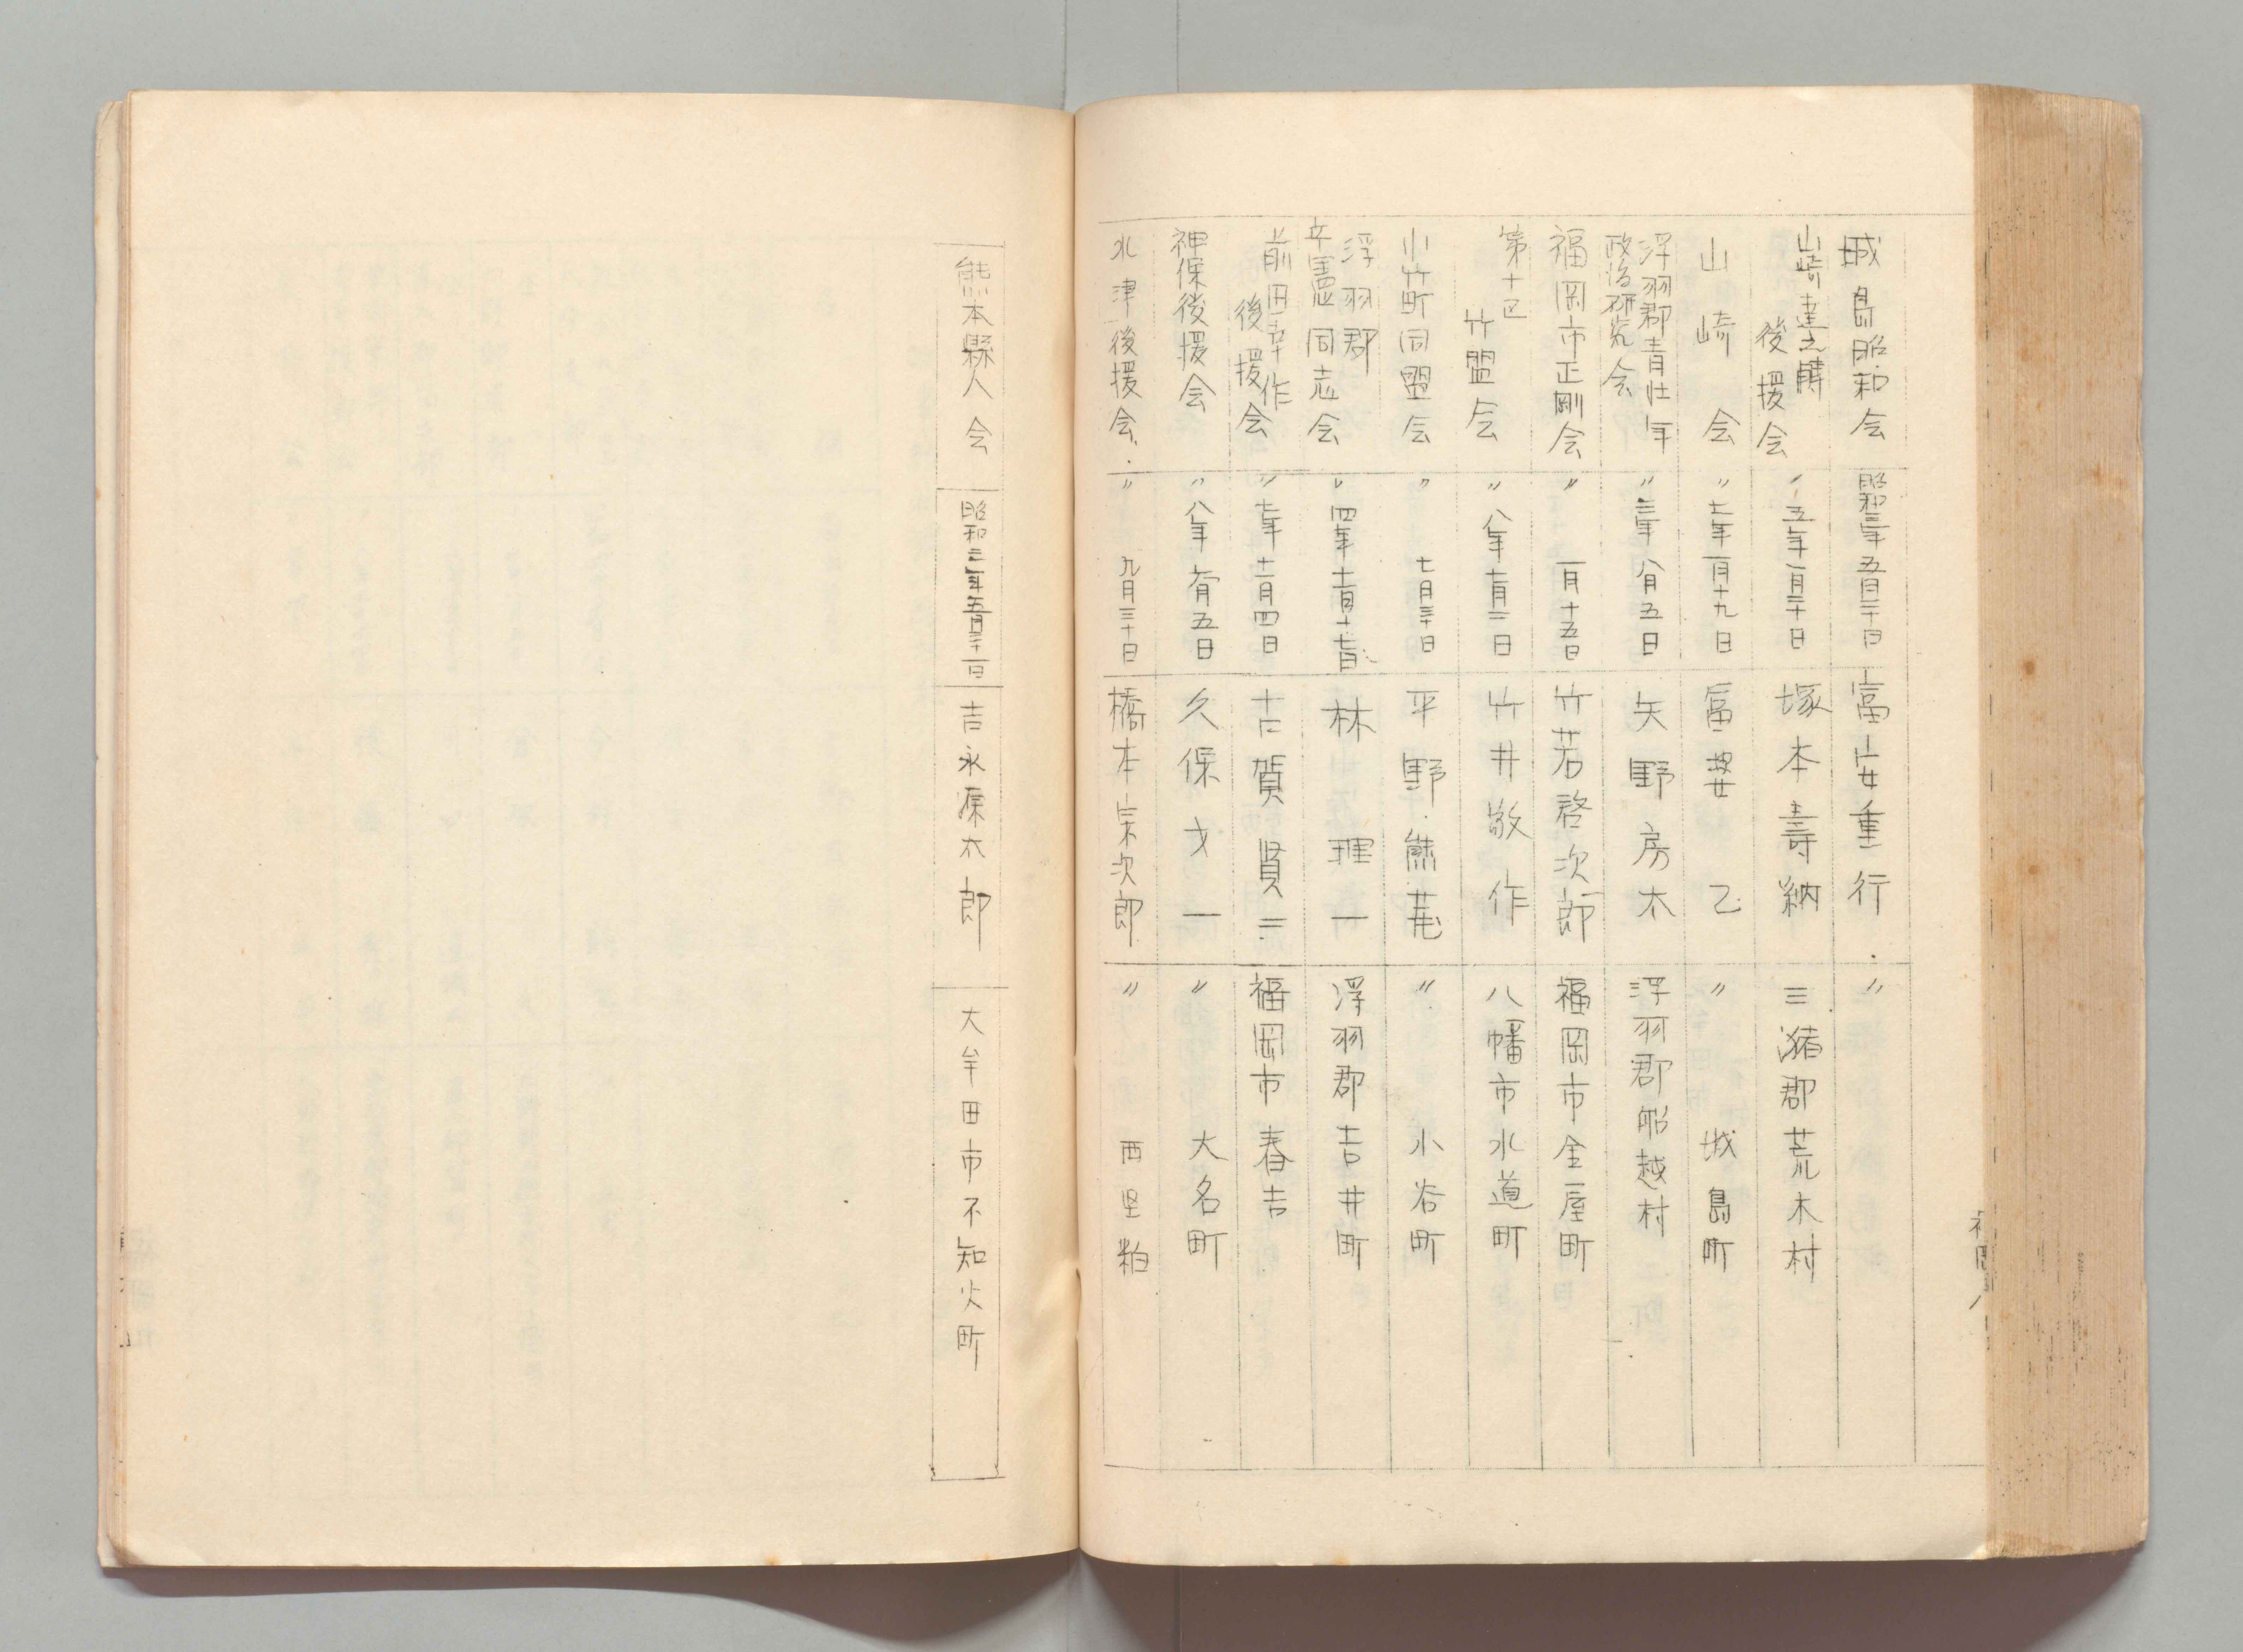 城島昭和会 昭和三年五月二十日 富安重行 〃
山崎達之輔後援会 〃五年一月二十日 塚本壽納 三潴郡荒木村
山崎会 〃七年一月十九日 冨婆乙 〃城島町
浮羽郡青壮年政治研究会 〃三年八月五日 矢野房木 浮羽郡船越村
福岡市正剛会 〃一月十五日 竹若啓次郎 福岡市金屋町
第十区竹盟会 〃八年十一月二日 竹井敬作 八幡市水道町
小竹町同盟会 〃七月三十日 平野熊 〃小谷町
浮羽郡立憲同志会 〃四年十一月十七日 林理一 浮羽郡吉井町
前田幸作後援会 〃七年十一月四日 古賀賢二 福岡市春吉
神保後援会 〃八年六月五日 久保才一 〃大名町
水津後援会 〃九月三十日 橋本宗次郎 〃西堅粕
熊本縣人会 昭和三年五月三十一日 吉永源太郎 大牟田市不知火町